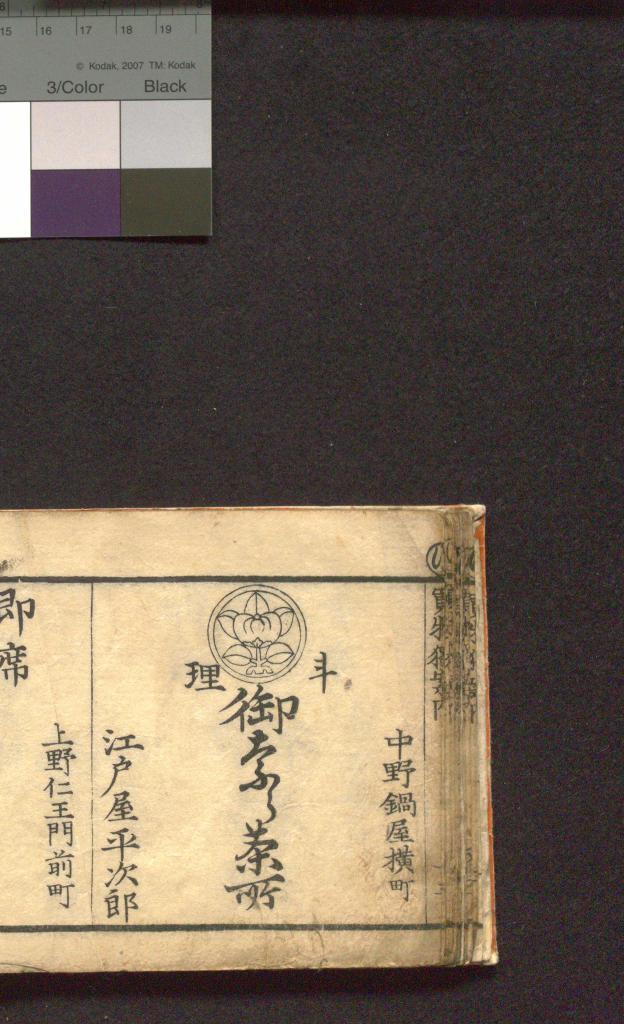 15 16 17 18 19
© Kodak, 2007 TM: Kodak
3/Color Black
中野鍋屋横町
斗理
御奈良茶所
江戸屋平次郎
上野仁王門前町
即席